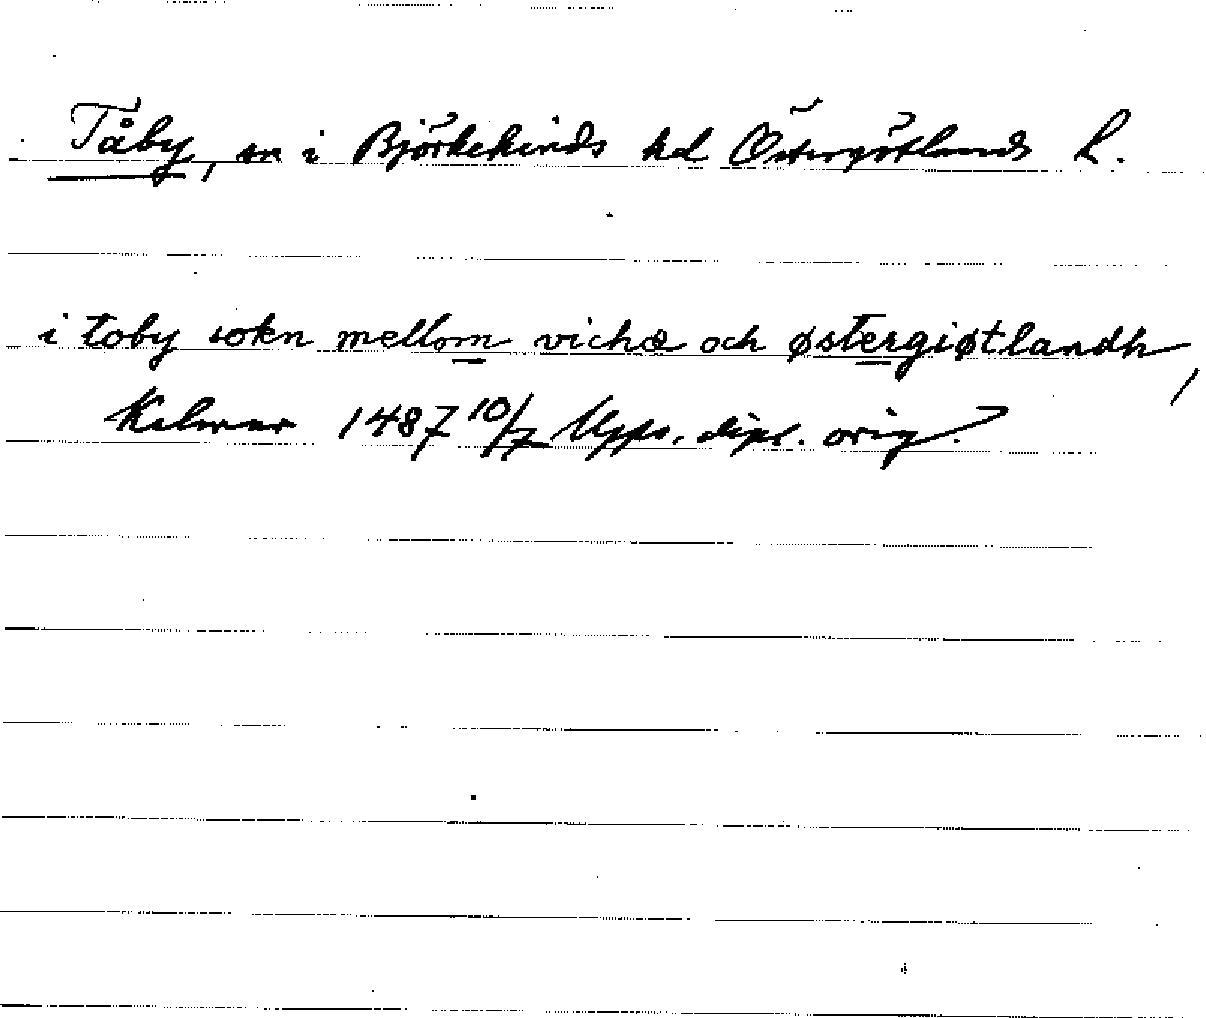 Tåby, sn i Björkekinds hd Östergötlands L.
i toby sokn mellom vichæ och østergiøtlandh,
Kalmar 1487 10/7 Upps. dipl. orig.